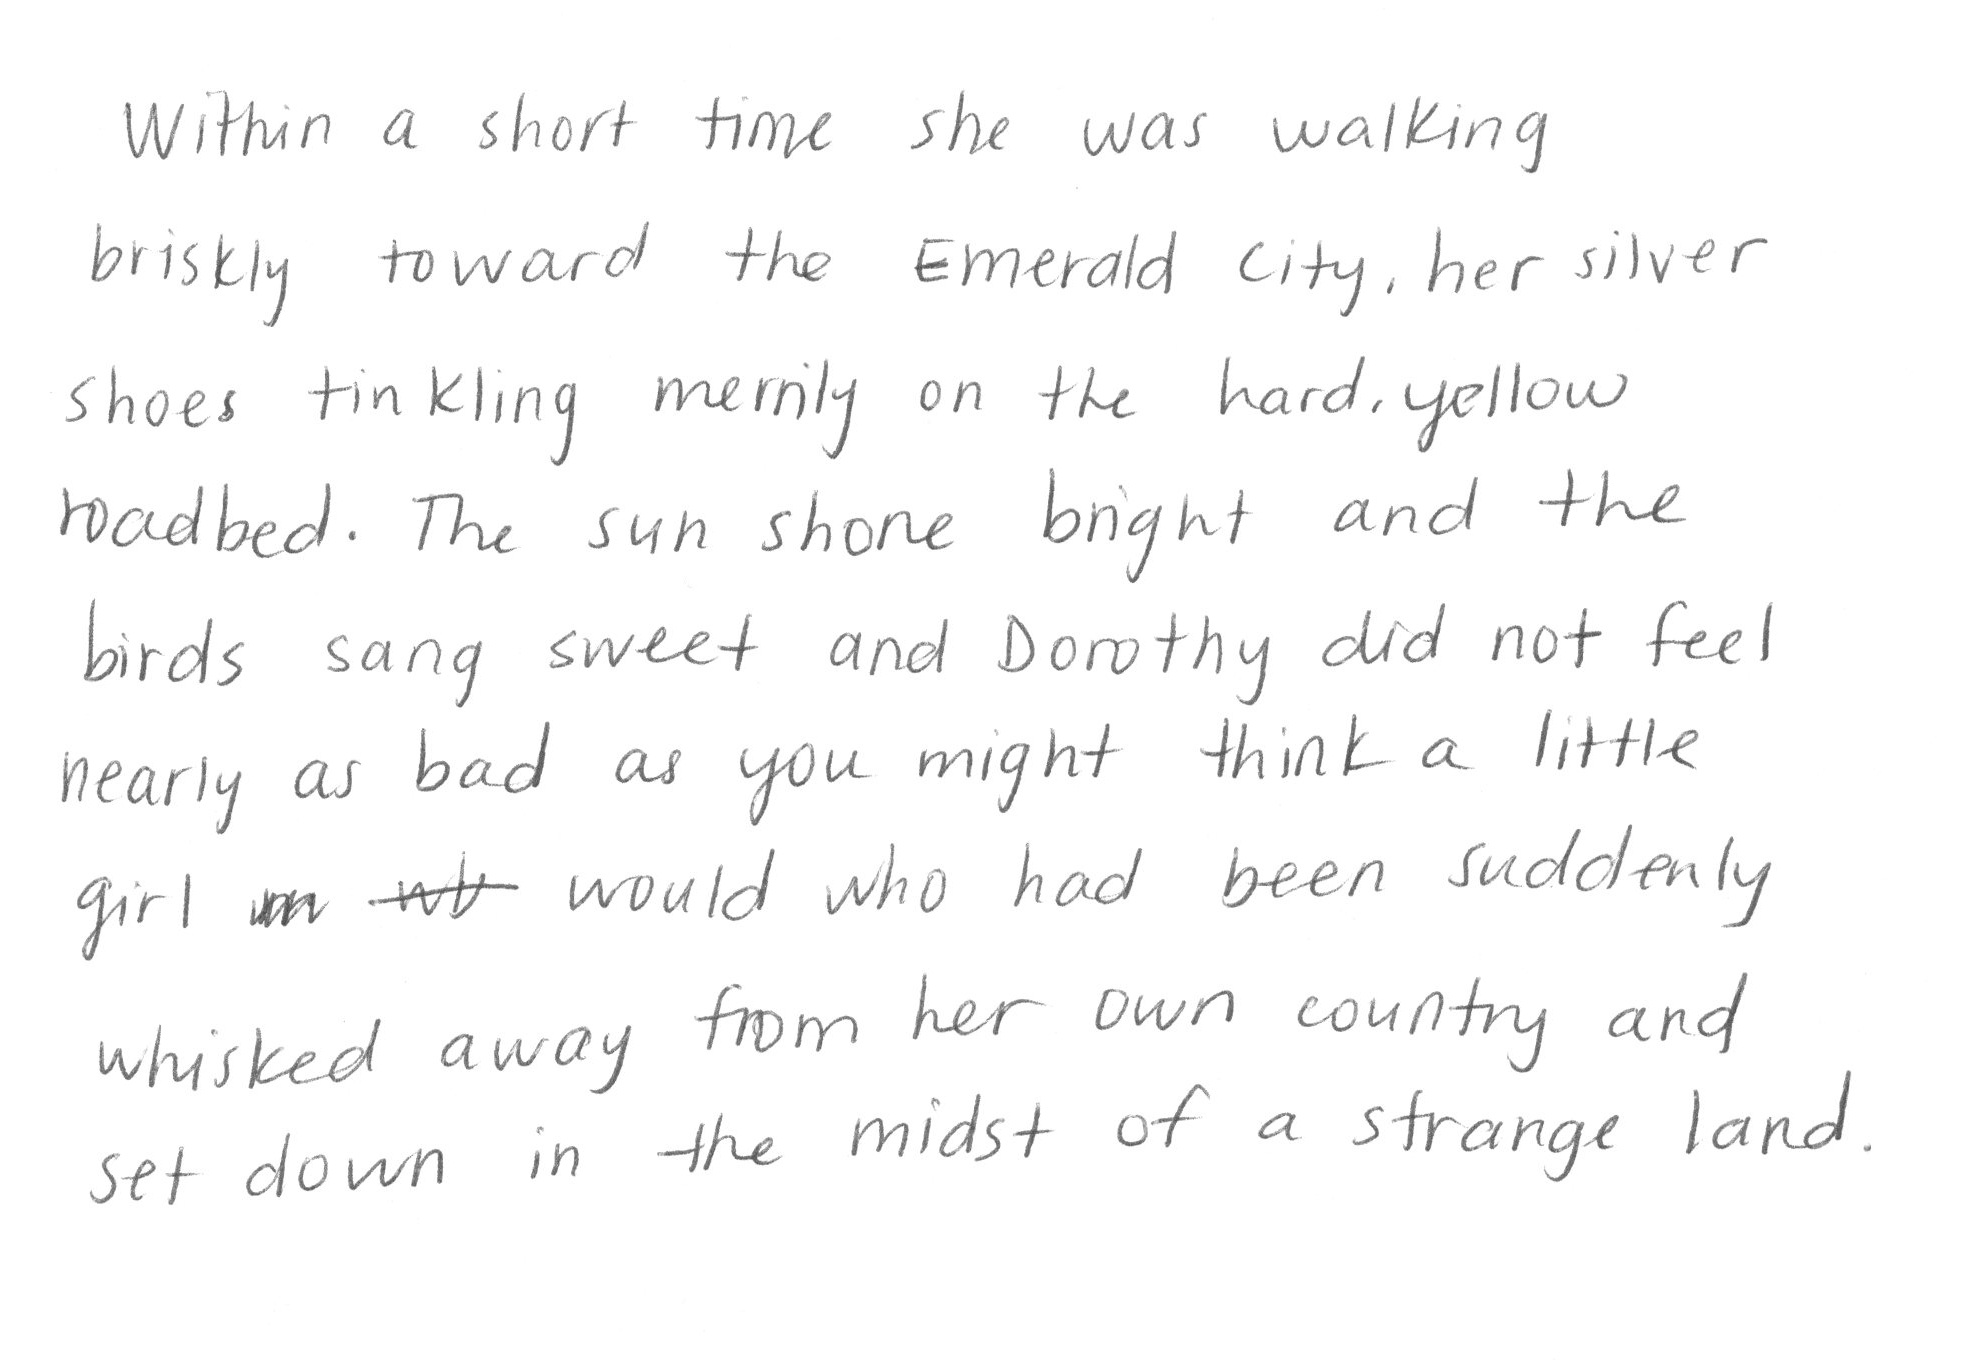 Within a short time she was walking
briskly toward the Emerald City, her silver
shoes tinkling merrily on the hard, yellow
roadbed. The sun shone bright and the
birds sang sweet and Dorothy did not feel
nearly as bad as you might think a little
girl would who had been suddenly
whisked away from her own country and
set down in the midst of a strange land.